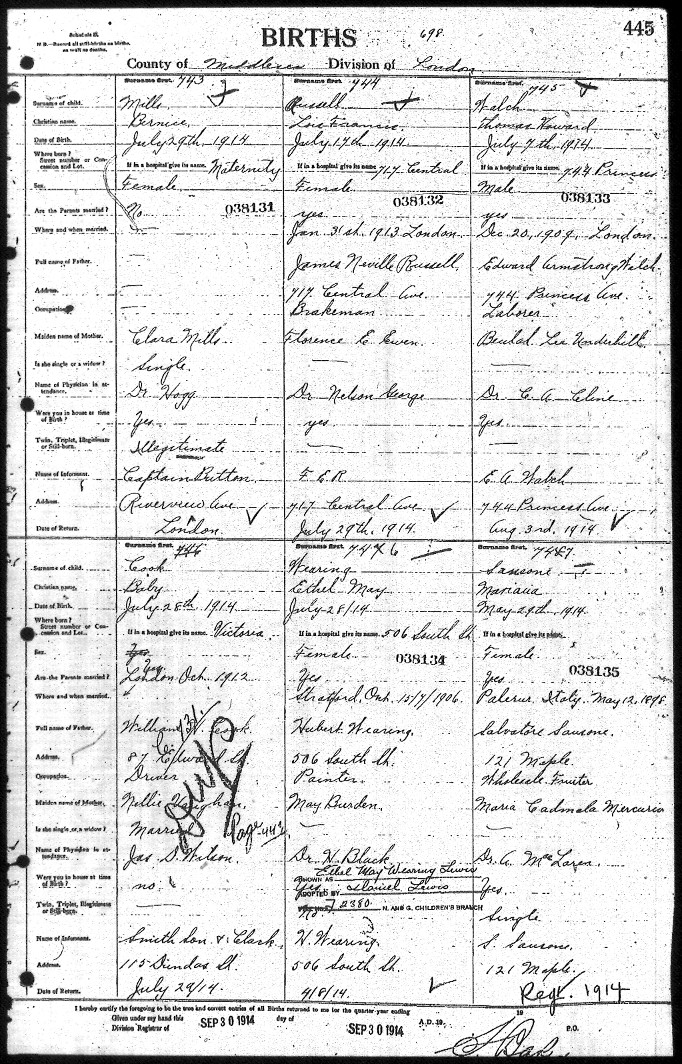 Schedule B.
N.B.—Record all still-births as births, as well as deaths.
BIRTHS
698
445
County of Middlesex Division of London
Surname first. 743
Surname first. 744
Surname first. 745
Surname of child. Mills Russell Walch
Christian name. Bernice Lois Francis Thomas Howard
Date of Birth. July 29th 1914 July 17th 1914 July 7th 1914
Where born? Street number or Concession and Lot. If in a hospital give its name. Maternity If in a hospital give its name 717 Central If in a hospital give its name. 744 Princess
Sex. Female Female Male
038131 038132 038133
Are the Parents married? No yes yes
Where and when married. — Jan 31st 1913 London Dec 20, 1909, London
Full name of Father. — James Neville Russell Edward Armstrong Walch
Address. — 717 Central Ave. 744 Princess Ave.
Occupation — Brakeman Laborer
Maiden name of Mother. Clara Mills Florence E Ewen Lea Underhill
Is she single or a widow? Single — —
Name of Physician in attendance. Dr Hogg Dr Nelson George Dr C A Cline
Were you in house at time of Birth? Yes yes Yes
Twin, Triplet, Illegitimate or Still-born. Illegitimate — —
Name of Informant. Captain Britton F. E. R. E. A. Walch
Address Riverview Ave London 717 Central Ave 744 Princess Ave
Date of Return. July 29th 1914 Aug 3rd, 1914
Surname first. 746
Surname first. 7446
Surname first. 7447
Surname of child. Cook Wearing Sansone
Christian name. Baby Ethel May Mariana
Date of Birth. July 28th 1914 July 28/14 May 29th 1914
Where born? Street number or Concession and Lot. If in a hospital give its name. Victoria If in a hospital give its name 506 South St If in a hospital give its name.
Sex. Female Female
038134 038135
Are the Parents married? Yes Yes Yes
Where and when married. London Oct. 1912 Stratford, Ont. 15/7/1906 Palermo, Italy, May 12, 1898
Full name of Father. William H. Cook Hubert Wearing Salvatore Sansone.
Address. 87 Edward St. 506 South St. 121 Maple
Occupation. Driver Painter Wholesale Fruiter
Maiden name of Mother. Nellie Vaughan May Burden Maria Cadmala Mercurio
Dup
Page 442
Is she single or a widow? Married — —
Name of Physician in attendance. Jas D. Wilson Dr H Black Dr. A McLaren
KNOWN AS Ethel May Wearing Lewis
Were you in house at time of Birth? no Yes Yes.
ADOPTED BY Daniel Lewis
72380 N. AND G. CHILDREN'S BRANCH
Twin, Triplet, Illegitimate or Still-born. No Single
Name of Informant. Smith Son & Clark H. Wearing S. Sansone
Address. 115 Dundas St. 506 South St. 121 Maple
Date of Return. July 29/14 4/8/14. Regt. 1914
I hereby certify the foregoing to be the true and correct entries of all Births returned to me for the quarter-year ending 19
Given under my hand this SEP 30 1914 day of SEP 30 1914 A.D. 19
Division Registrar of P.O.